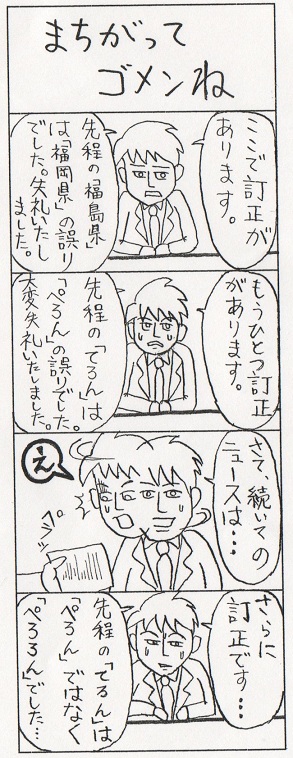 まちがって
ゴメンね
ここで訂正が
あります。
先程の「福島県」
は、「福岡県」の誤り
でした。失礼いたし
ました。
もうひとつ訂正
があります。
先程の「てろん」は
「ぺろん」の誤りでした。
大変失礼いたしました。
さて、続いての
ニュースは…
え
ペラッ
さらに
訂正です…
先程の「てろん」は
「ぺろん」ではなく
「ぺろろん」でした…